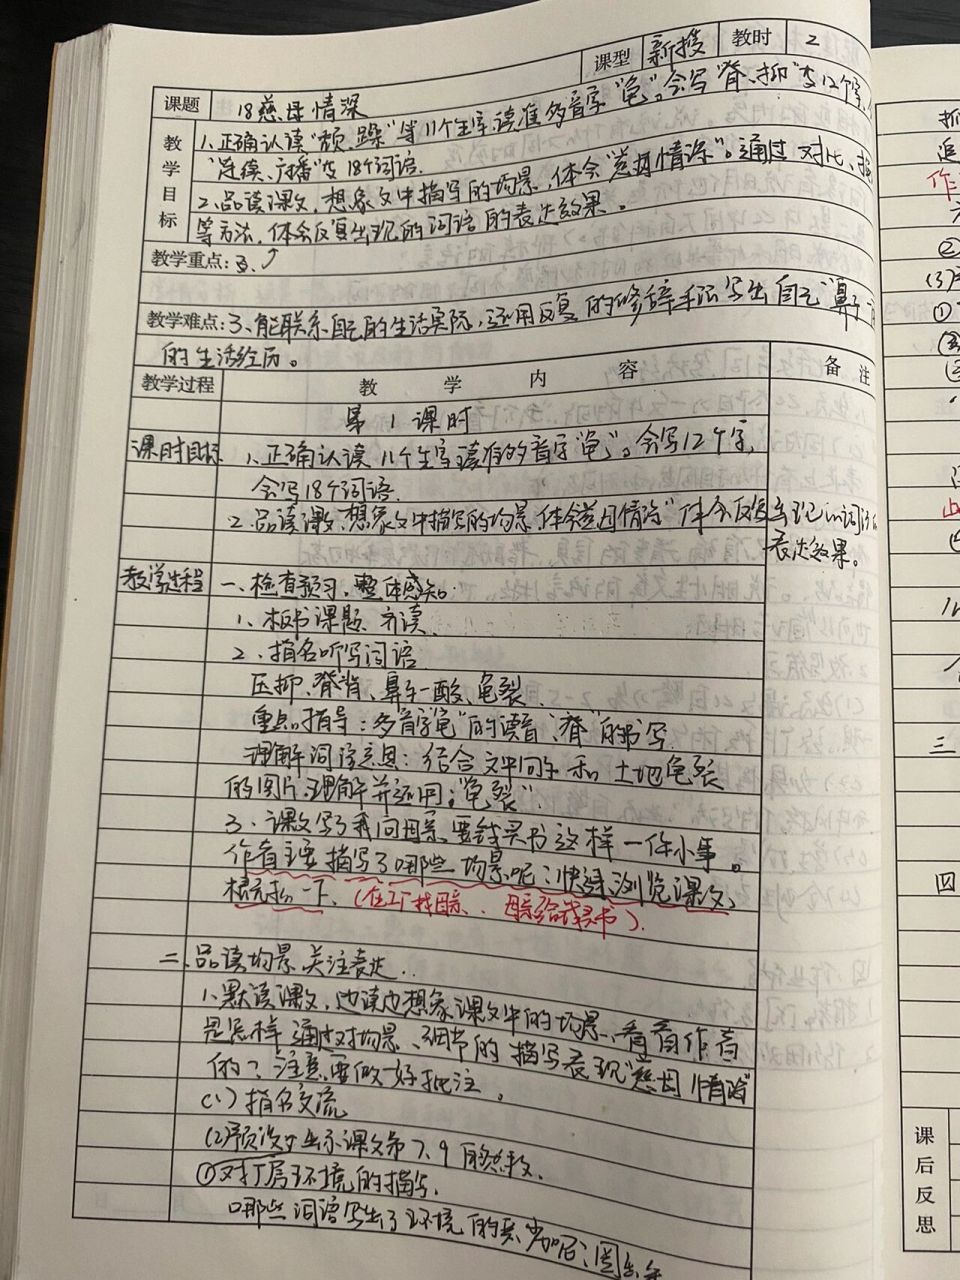 课型 新授 教时 2
课题 18慈母情深
教学目标
1、正确认读“颓、跺”等11个生字,读准多音字“龟”。会写“脊、抑”等12个字,
“连续、广播”等18个词语.
2、品读课文,想象文中描写的场景,体会“慈母情深”。通过对比、
等方法,体会反复出现的词语的表达效果。
教学重点:
教学难点:3、能联系自己的生活实际,运用反复的修辞手法写出自己“鼻子一
的生活经历。
教学过程 教学内容 备注
第1课时
课时目标 1、正确认读11个生字,读准多音字“龟”。会写12个字,
会写18个词语.
2、品读课文,想象文中描写的场景,体会“慈母情深”体会反复出现的词语的
表达效果。
教学过程 一、检查预习,整体感知.
1、板书课题、齐读.
2、指名听写词语
压抑、脊背、鼻子一酸、龟裂
重点指导:多音字“龟”的读音、“脊”的书写.
理解词语意思:结合文中句子和土地龟裂
的图片,理解并运用:“龟裂”.
3、课文写了我向母亲要钱买书这样一件小事。
作者主要描写了哪些场景呢?快速浏览课文,
概括一下.(在工厂找母亲、母亲给钱买书).
二、品读场景,关注表达..
1、默读课文,边读边想象课文中的场景,看看作者
是怎样通过对场景、细节的描写表现“慈母情深”
的?注意要做好批注。
(1)指名交流
(2)预设 出示课文第7、9自然段.
①对厂房环境的描写.
哪些词语写出了环境的恶劣呢?
抓
追
作
②
(3)
①
三
四
课后反思